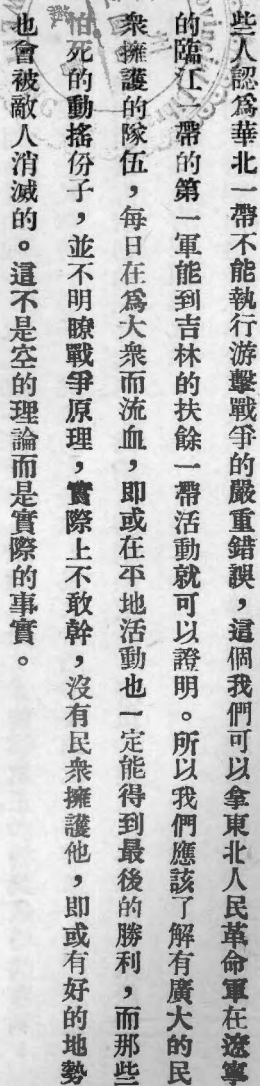 些人認爲華北一帶不能執行游擊戰爭的嚴重錯誤，這個我們可以拿東北人民革命軍在遼寧
的臨江一帶的第一軍能到吉林的扶餘一帶活動就可以證明。所以我們應該了解有廣大的民
衆擁護的隊伍，每日在爲大衆而流血，即或在平地活動也一定能得到最後的勝利，而那些
怕死的動搖份子，並不明瞭戰爭原理，實際上不敢幹，沒有民衆擁護他，即或有好的地勢
也會被敵人消滅的。這不是空的理論而是實際的事實。